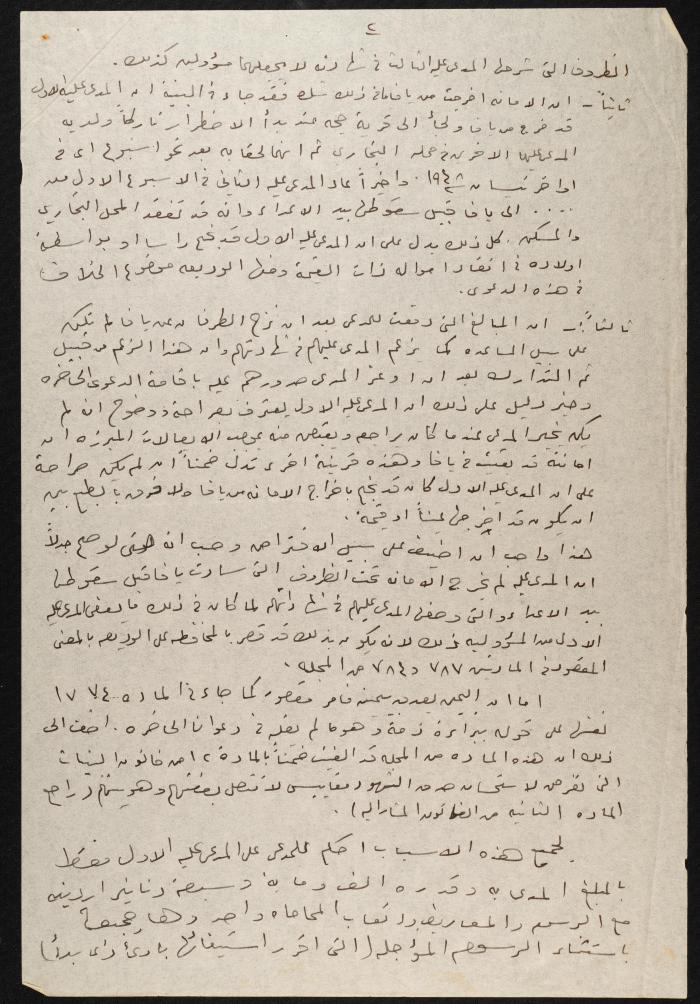 ٢
الظروف التي شرحها المدعى عليه الثالث في شهادته لا يجعلهما مسؤولين كذلك.
ثانياً - ان الامانة اخرجت من يافا ما في ذلك شك فقد جاء في البينة ان المدعى عليه الاول
قد خرج من يافا ولجأ الى قرية عند بدأ الاضطرار تاركاً ولديه
المدعى عليهما الاخرين في محله التجاري ثم انهما لحقا به بعد نحو اسبوع اي في
اواخر نيسان ١٩٤٨. واخيراً عاد المدعى عليه الثاني في الاسبوع الاول من
.... الى يافا قبيل سقوطها بيد الاعداء وانه قد تفقد المحل التجاري
والمسكن. كل ذلك يدل على ان المدعى عليه الاول قد نجح راسا او بواسطة
اولاده في انقاذ امواله ذات القيمة ومنها الوديعه موضوع الخلاف
في هذه الدعوى.
ثالثاً - ان المبالغ التي دفعت للمدعي بعد ان نزح الطرفان من يافا لم تكن
على سبيل المساعده كما يزعم المدعى عليهم في شهادتهم وان هذا الزعم من قبيل
ثم التدارك بعد ان المدعي عليه باقامة الدعوى الحاضره
وخير دليل على ذلك ان المدعى عليه الاول يعترف بصراحة ووضوح انه لم
يكن يخبر المدعي عندما كان يراجعه ويقبض منه بموجب الايصالات المبرزه ان
امانته قد بقيت في يافا وهذه قرينة اخرى تدل ضمناً ان لم يكن صراحة
على ان المدعى عليه الاول كان قد نجح باخراج الامانه من يافا ولا فرق بالطبع بين
ان يكون قد اخرجها عيناً او قيمة.
هذا واجب ان اضيف على سبيل الافتراض وحب انه حتى لو صح جدلاً
ان المدعى عليه لم يخرج الامانه تحت الظروف التي سادت يافا قبل سقوطها
بيد الاعداء والتي وصفها المدعى عليهم في شهاداتهم لما كان في ذلك ما يعفي المدعى عليه
الاول من المسؤوليه ذلك لانه يكون بذلك قد قصر بالمحافظه على الوديعه بالمعنى
المقصود في المادتين ٧٨٧ و ٧٨٤ من المجله.
اما ان اليمين فامر مقصور كما جاء في الماده ١٧٧٤
نفسها على قوله ببراءة ذمة وهو ما لم يقله في دعوانا الحاضره. اضف الى
ذلك ان هذه الماده من المجله قد الغيت ضمناً بالمادة ١٢ من قانون البينات
التي تعرض لامتحان صدق الشهود مقاييس لا تتصل بعضهم وهو (راجع
الماده الثانيه من القانون المشار اليه).
لجميع هذه الاسباب احكم للمدعي على المدعى عليه الاول فقط
بالمبلغ المدعى به وقدره الف وماية وسبعة دنانير اردنيه
مع الرسوم والمصاريف واتعاب المحاماه
باستثناء الرسوم المؤجله (التي اقرر استيفائها بادئ ذي بدء)